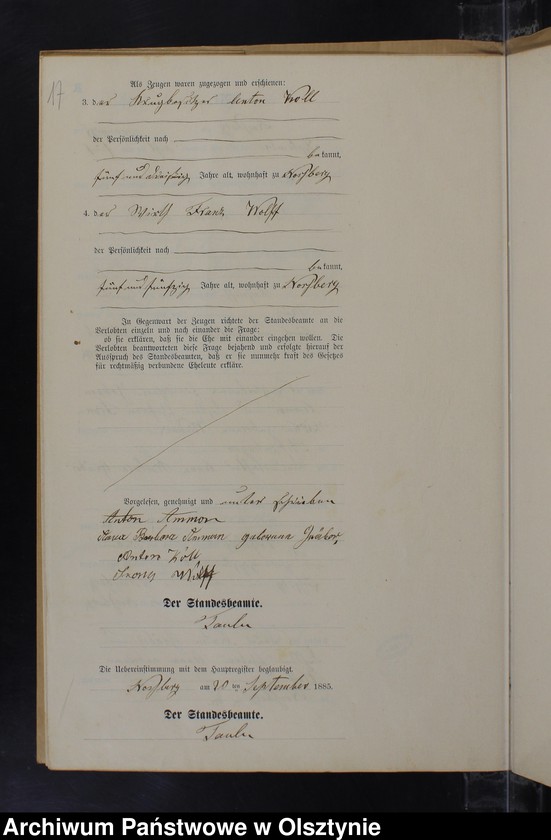 17
Als Zeugen waren zugezogen und erschienen:
3. der Krugbesitzer Anton Köll
der Persönlichkeit nach
bekannt,
fünf und dreißig Jahre alt, wohnhaft zu Noßberg
4. der Wirth Franz Wolff
der Persönlichkeit nach
bekannt,
fünf und fünfzig Jahre alt, wohnhaft zu Noßberg
In Gegenwart der Zeugen richtete der Standesbeamte an die
Verlobten einzeln und nach einander die Frage:
ob sie erklären, daß sie die Ehe mit einander eingehen wollen. Die
Verlobten beantworteten diese Frage bejahend und erfolgte hierauf der
Ausspruch des Standesbeamten, daß er sie nunmehr kraft des Gesetzes
für rechtmäßig verbundene Eheleute erkläre.
Vorgelesen, genehmigt und unterschrieben
Anton Ammon
Barbara Ammon geborene
Anton Köll
Franz Wolff
Der Standesbeamte.
Die Uebereinstimmung mit dem Hauptregister beglaubigt.
Noßberg am 20 ten September 1885.
Der Standesbeamte.
Archiwum Państwowe w Olsztynie